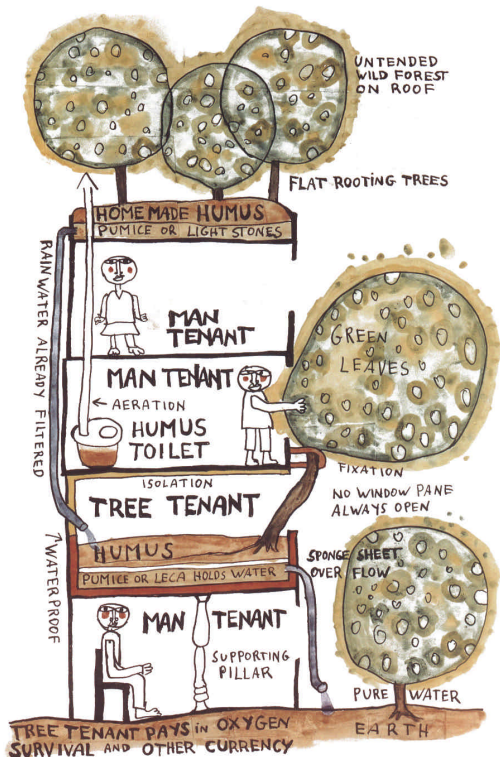 UNTENDED
WILD FOREST
ON ROOF
FLAT ROOTING TREES
HOME MADE HUMUS
PUMICE OR LIGHT STONES
RAINWATER ALREADY FILTERED
MAN
TENANT
MAN TENANT
← AERATION
HUMUS
TOILET
GREEN
LEAVES
FIXATION
NO WINDOW PANE
ALWAYS OPEN
ISOLATION
TREE TENANT
HUMUS
PUMICE OR LECA HOLDS WATER
SPONGE SHEET
OVER FLOW
↑WATERPROOF
MAN TENANT
SUPPORTING
PILLAR
PURE WATER
EARTH
TREE TENANT PAYS in OXYGEN
SURVIVAL AND OTHER CURRENCY